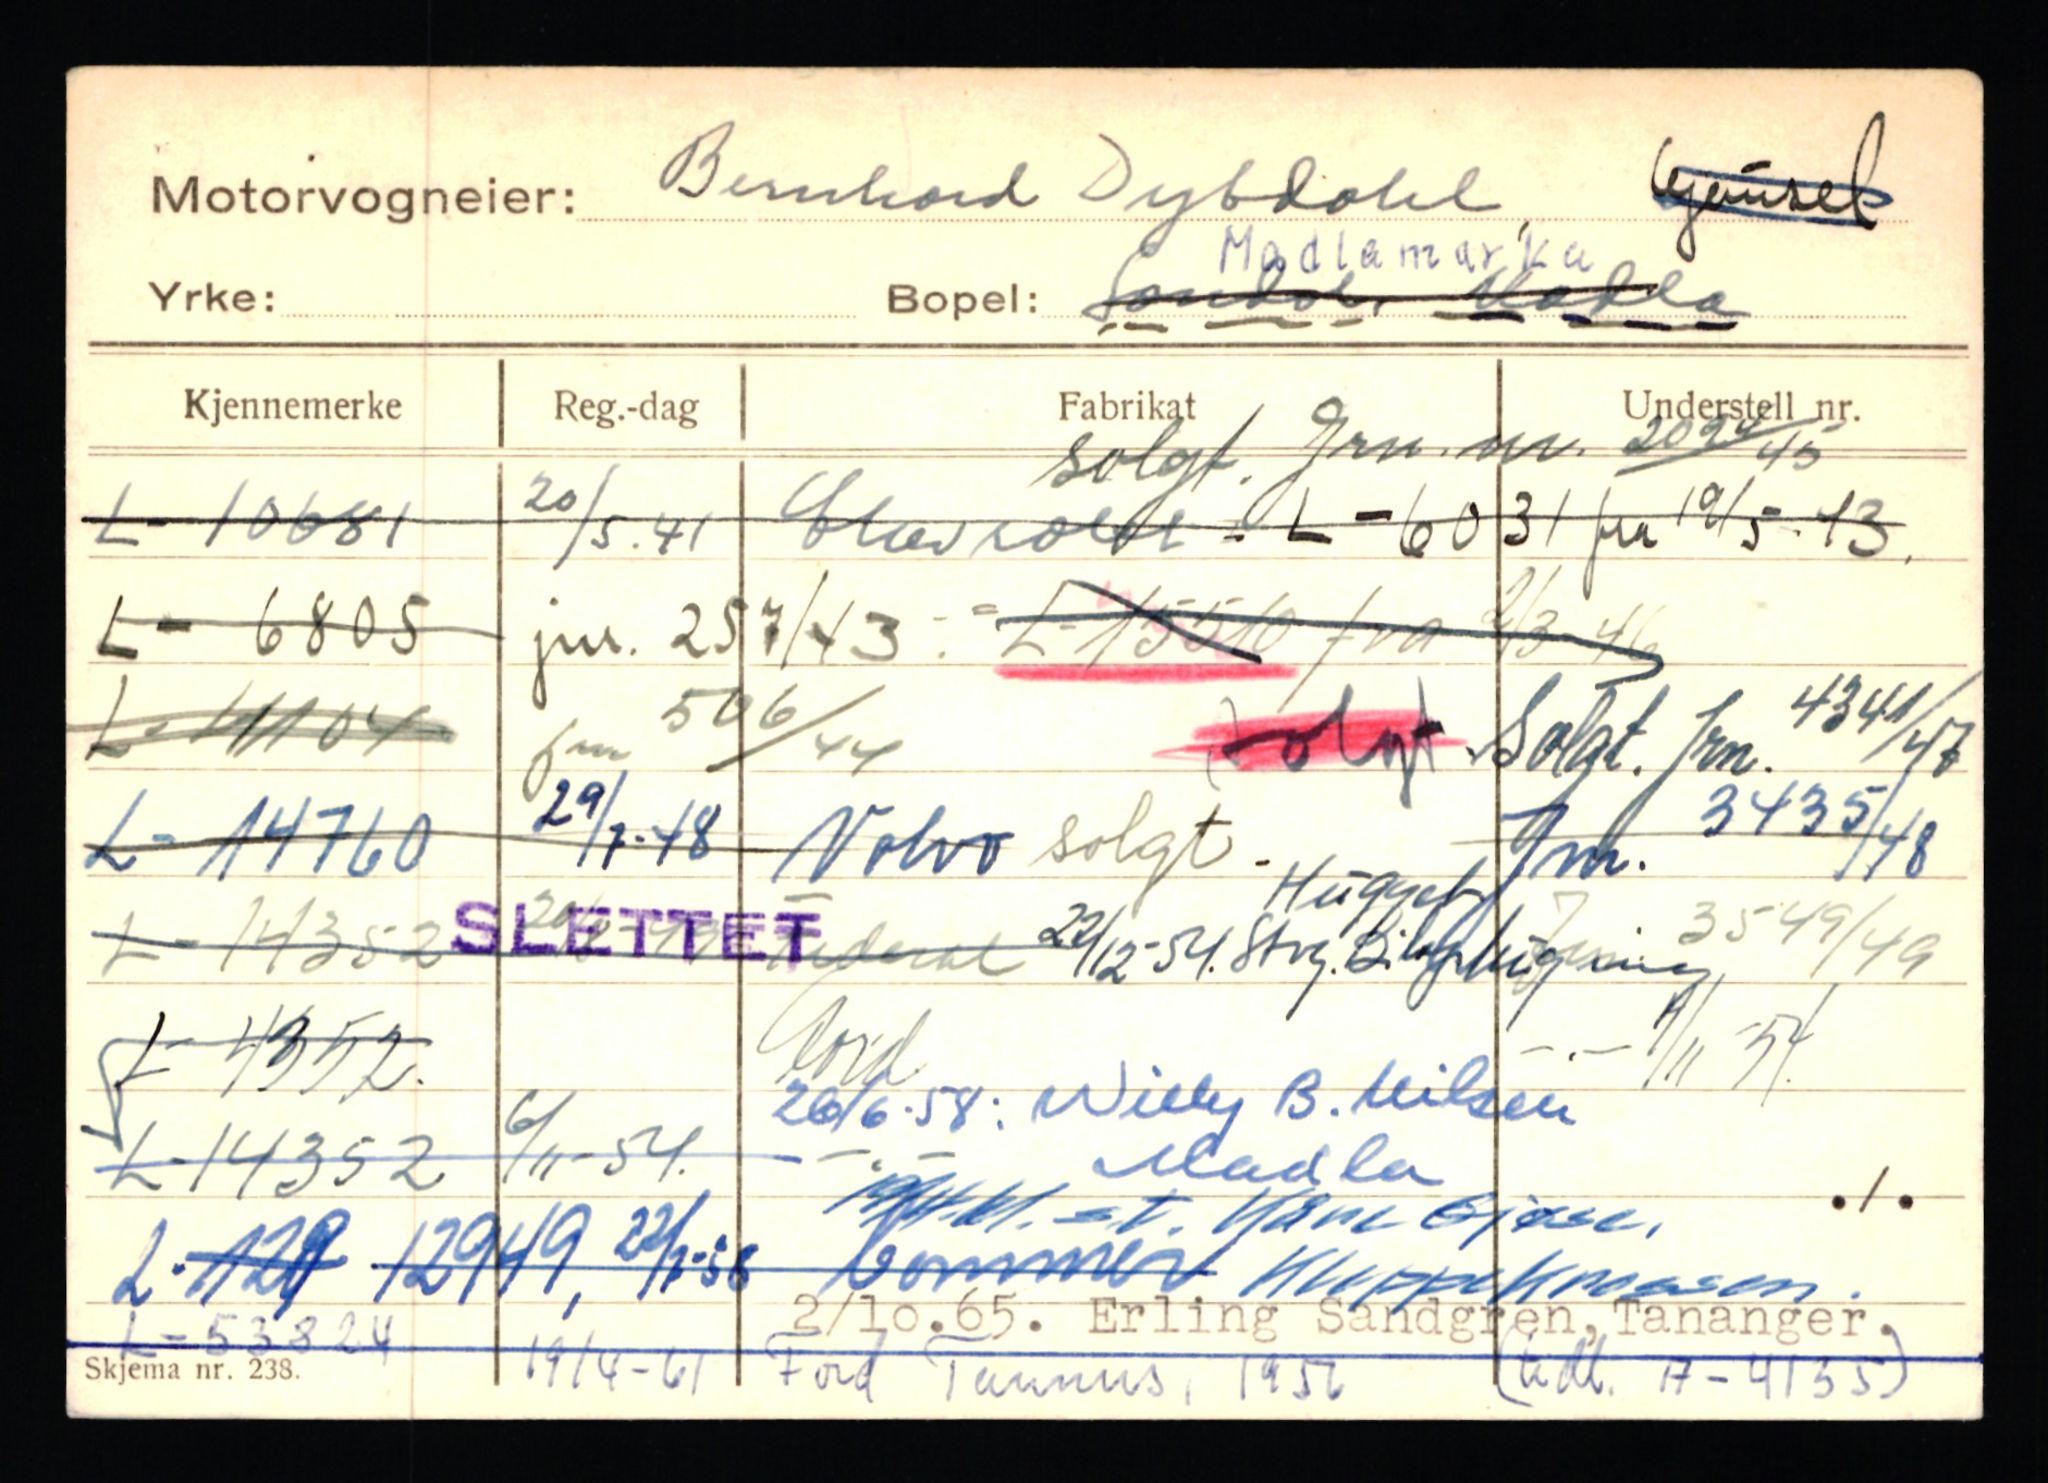 Motorvogneier: Bernhard Dybdahl
Madlamarka
Yrke: Bopel: Madla
Kjennemerke Reg.-dag Fabrikat Understell nr.
solgt. Jrn. nr. 2024/45
L-10681 20/5.41 Chevrolet = L-6031 fra 19/5-43.
L-6805 jnr. 257/43 : = L-15510 fra 2/3 46
L-41104 jnr 506/44 solgt Solgt. Jrn. 4341/47
L-14760 29/7-48 Volvo solgt. Jrn. 3435/48
Hugget
L-14352 SLETTET Federal 22/12-54. Stvg. Bilopphugning 3549/49
L-4352. Ford -.- 11/11 54.
26/6-58: Willy B. Nilsen
L-14352 6/11-54. -.- Madla
./.
L-129 12949, 22/7-58 Commer Kleppekrossen.
2/10.65. Erling Sandgren, Tananger.
L-53824 19/4-61 Ford Taunus, 1956 (tidl. A-4135)
Skjema nr. 238.